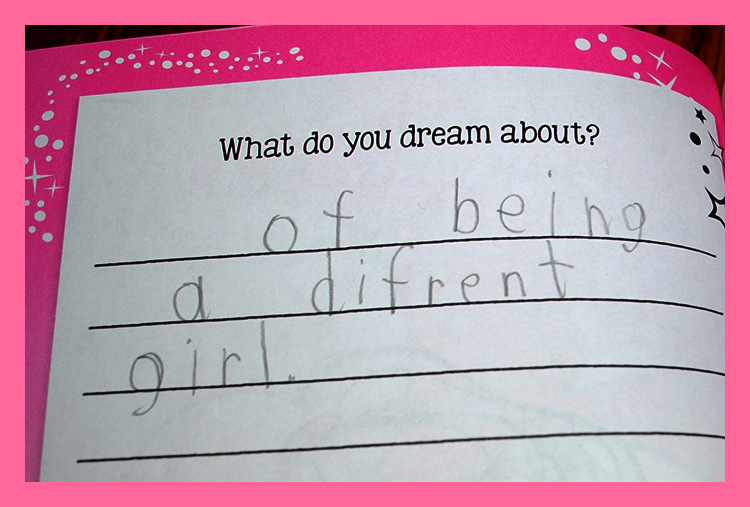 What do you dream about?
of being
a difrent
girl.